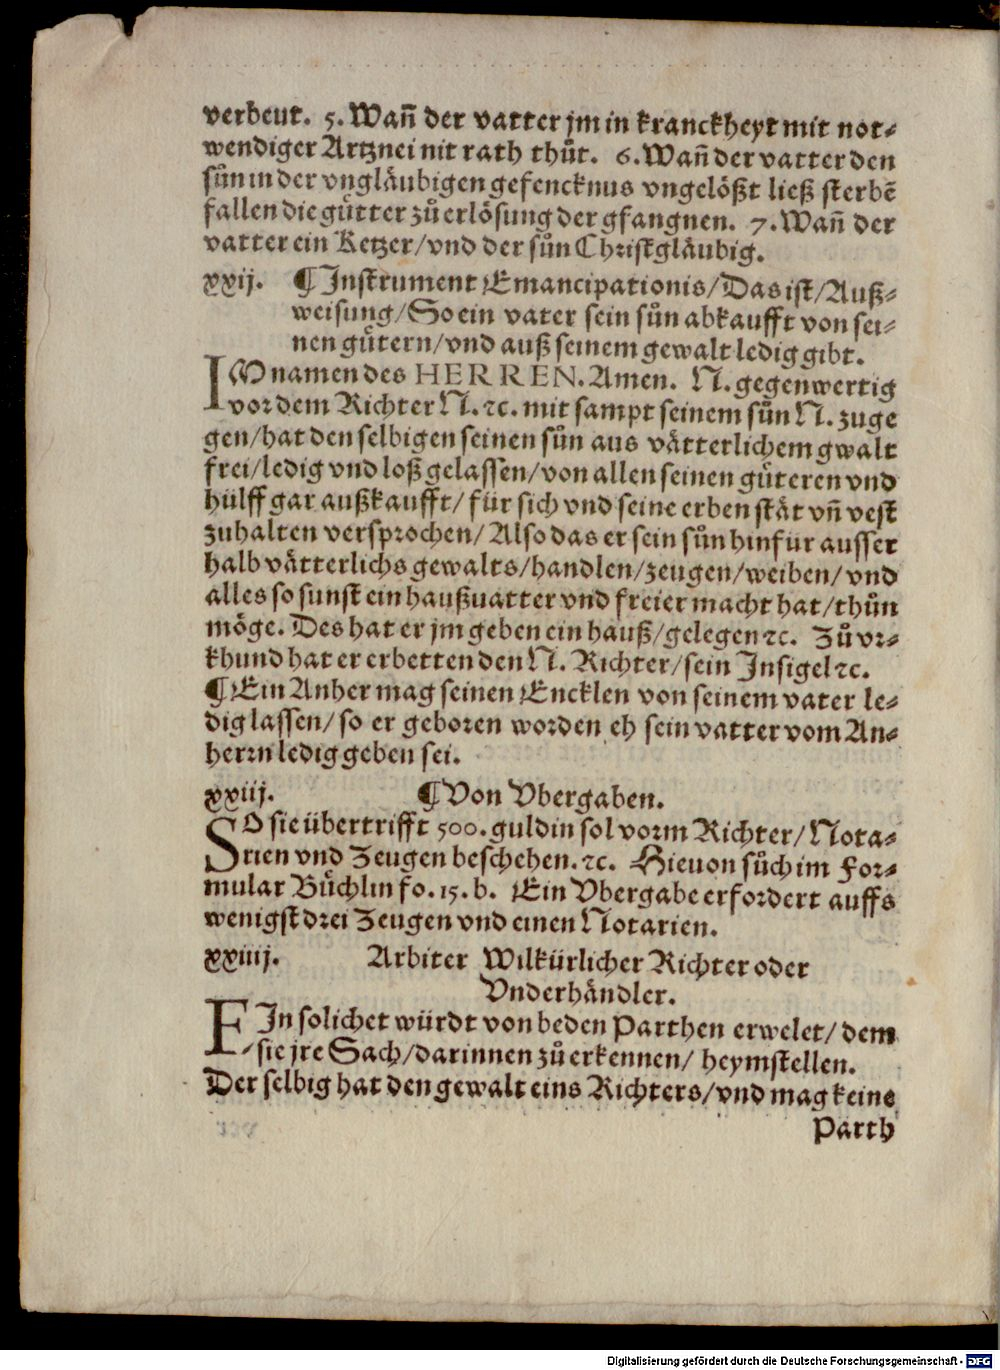 verbeut. 5. Wañ der vatter jm in kranckheyt mit not⸗
wendiger Artznei nit rath thůt. 6. Wañ der vatter den
sůn in der vngläubigen gefencknus vngelößt ließ sterbẽ
fallen die gütter zů erlösung der gfangnen. 7. Wañ der
vatter ein Ketzer/vnd der sůn Christgläubig.
xxij. ¶ Instrument Emancipationis/Das ist/Auß⸗
weisung/So ein vater sein sůn abkaufft von sei⸗
nen gütern/vnd auß seinem gewalt ledig gibt.
IM namen des HERREN. Amen. N. gegenwertig
vor dem Richter N. ꝛc. mit sampt seinem sůn N. zuge
gen/hat den selbigen seinen sůn aus vätterlichem gwalt
frei/ledig vnd loß gelassen/von allen seinen güteren vnd
hülff gar außkaufft/ für sich vnd seine erben stät vñ vest
zuhalten versprochen/ Also das er sein sůn hinfür ausser
halb vätterlichs gewalts/handlen/zeugen/weiben/vnd
alles so sunst ein haußuatter vnd freier macht hat/thůn
möge. Des hat er jm geben ein hauß/gelegen ꝛc. Zů vr⸗
khund hat er erbetten den N. Richter/sein Insigel ꝛc.
¶ Ein Anher mag seinen Encklen von seinem vater le⸗
dig lassen/ so er geboren worden eh sein vatter vom An⸗
herrn ledig geben sei.
xxiij. ¶ Von Vbergaben.
SO sie übertrifft 500. guldin sol vorm Richter/Nota⸗
rien vnd Zeugen beschehen. ꝛc. Hieuon sůch im For⸗
mular Büchlin fo. 15. b. Ein Vbergabe erfordert auffs
wenigst drei Zeugen vnd einen Notarien.
xxiiij. Arbiter Wilkürlicher Richter oder
Vnderhändler.
EIn solichet würdt von beden Parthen erwelet/ dem
sie jre Sach/darinnen zů erkennen/ heymstellen.
Der selbig hat den gewalt eins Richters/vnd mag keine
Parth
Digitalisierung gefördert durch die Deutsche Forschungsgemeinschaft - DFG